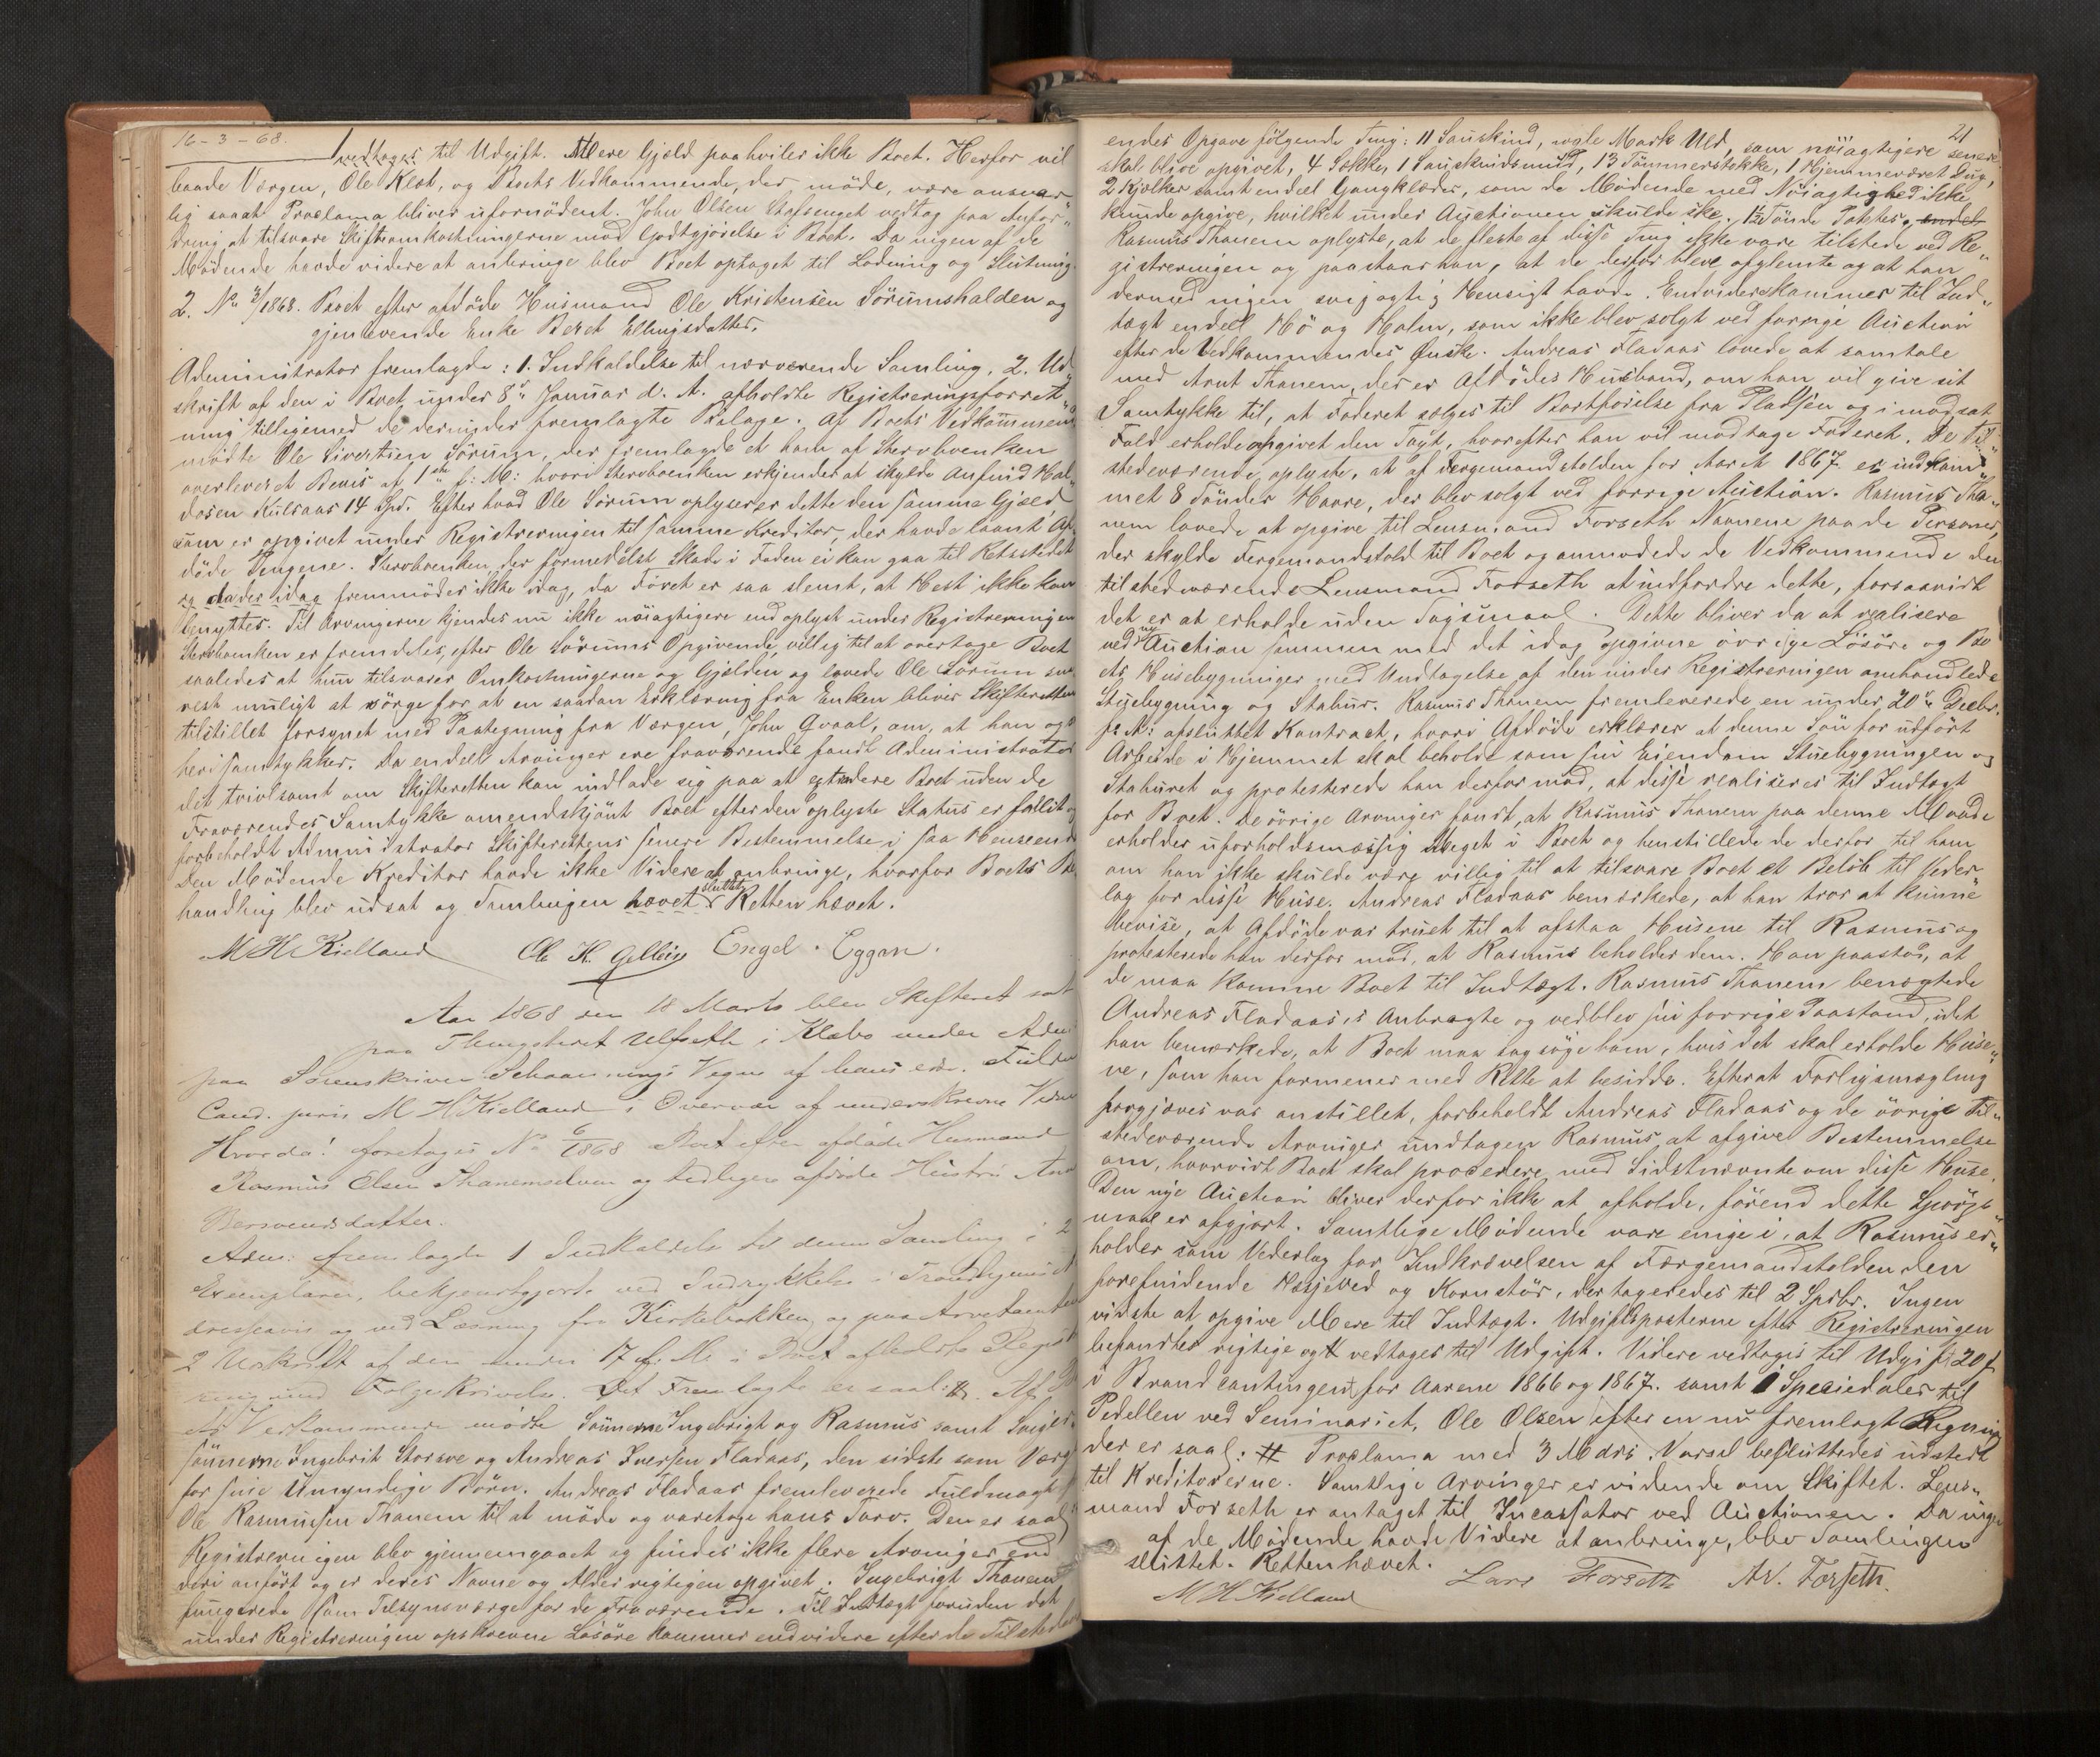 16-3-68.
vedtages til Udgift. Mere Gjæld paahviler ikke Boet. Herfor vil
baade Værgen, Ole Klæt, og Boets Vedkommende, der møde, være ansvar„
lig saaat Proclama bliver ufornödent. John Olsen Stafsenget vedtog paa Anfor„
dring at tilsvare Skifteomkostningerne mod Godtgjörelse i Boet. Da ingen af de
Mödende havde videre at anbringe blev Boet optaget til Lodning og Slutning.
2. No 3/1868. Boet efter afdöde Husmand Ole Kristensen Sörumshalden og
gjenlevende Enke Beret Ellingsdatter.
Administrator fremlagde: 1. Indkaldelse til nærværende Samling, 2. Ud„
skrift af den i Boet under 8de Januar d. A. afholdte Registreringsforret„
ning tilligemed de derunder fremlagte Bilage. Af Boets Vedkommende
mödte Ole Sivertsen Sörum, der fremlagde et ham af Stervboenken
overleveret Bevis af 1ste f: M: hvori Stervboenken erkjender at skylde Arnfind Hal„
dosen Kulsaas 14 Spd. Efter hvad Ole Sörum oplyser er dette den samme Gjæld,
som er opgivet under Registreringen til samme Kreditor, der havde laant Af„
döde Pengene. Stervboenken, der formedelst Skade i Foden ei kan gaa til Retsstedet
og da der idag fremmöder ikke idag, da Föret er saa slemt, at Hest ikke kan
benyttes. Til Arvingerne kjendes nu ikke nöiagtigere end oplyst under Registreringen
Stervboenken er fremdeles, efter Ole Sörums Opgivende, villig til at overtage Boet
saaledes at hun tilsvarer Omkostningerne og Gjælden og lovede Ole Sörum sna„
rest muligt at sörge for at en saadan Erklæring fra Enken bliver Skifteretten
tilstillet forsynet med Paategning fra Værgen, John Qvaal, om, at han og
heri samtykker. Da endeel Arvinger ere fraværende fandt Administrator
det tvivlsomt om Skifteretten kan indlade sig paa at extradere Boet uden de
Fraværendes Samtykke omendskjönt Boet efter den oplyste Status er fallit og
forbeholdt Administrator Skifterettens senere Bestemmelse i saa Henseende
Den Mödende Kreditor havde ikke Videre at anbringe, hvorfor Boets Be
handling blev udsat og Samlingen hævet sluttet Retten hævet.
M H Kielland Ole K. Gellein Engel . Eggan.
Aar 1868 den 18 Marts blev Skifteret sat
paa Thingstedet Ulfseth i Klæbo under Adm:
paa Sorenskriver Schaannings Vegne af hans edsv. Fuldm
Cand. juris M H Kielland i Overvær af underskrevne Vidner
Hvorda: foretoges No 6/1868 Boet efter afdöde Husmand
Rasmus Elsen Thanemselven og tidligere afdöde Hustru Ane
Bersvendsdatter.
Adm: fremlagde 1 Indkaldelse til denne Samling i 2
Exemplarer, bekjendtgjort ved Indrykkelse i Trondhjems A
dresseavis og ved Læsning fra Kirkebakken og paa Arvetomten
2 Udskrift af den under 17 f. M. i Boet afholdte Regist
rering med Fölgeskrivelse. Det Fremlagte er saal: #. Af Bo
ets Vedkommende mödte Sönnerne Ingebrigt og Rasmus samt Sviger
sönnerne Ingebrit Storsve og Andreas Iversen Fladaas, den sidste som Værge
for sine Umyndige Börn. Andreas Fladaas fremleverede Fuldmagt f
Ole Rasmussen Thanem til at möde og varetage hans Tarv. Den er saal
Registreringen blev gjennemgaaet og findes ikke flere Arvinger end
deri anfört og er deres Navne og Alder rigtigen opgivet. Ingebrigt Thanem
fungerede som Tilsynsværge for de Fraværende. Til Indtægt foruden det
under Registreringen opskrevne Lösöre kommer endvidere efter de Tilstedevær
21
endes Opgave fölgende Ting: 11 Sauskind, nogle Mark Uld, som nöiagtigere senere
skal blive opgivet, 4 Sække, 1 Sauskindsmud, 13 Tömmerstokke, 1 Hjemmeværet Dug,
2 Kjælker samt endeel Gangklæder, som de Mödende med Nöiagtighed ikke
kunde opgive, hvilket under Auctionen skulde ske. 1½ Tönde Poteter. endel
Rasmus Thanem oplyste, at de fleste af disse Ting ikke vare tilstede ved Re„
gistreringen og paastaar han, at de derfor bleve afglemte og at han
dermed ingen svigagtig Hensigt havde. Endvidere kommer til Ind„
tægt endeel Hö og Halm, som ikke blev solgt ved forrige Auction
efter de Vedkommendes Önske. Andreas Fladaas lovede at samtale
med Arnt Thanem, der er Afdödes Husbond, om han vil give sit
Samtykke til, at Foderet sælges til Bortförelse fra Pladsen og i modsat
Fald erholde opgivet den Taxt, hvorefter han vil modtage Foderet. De Til„
stedeværende oplyste, at af Færgemandstolden for Aaret 1867 er indkom„
met 8 Tönder Havre, der blev solgt ved forrige Auction. Rasmus Tha„
nem lovede at opgive til Lensmand Forseth Navnene paa de Personer,
der skylde Færgemandstold til Boet og anmodede de Vedkommende den
tilstedeværende Lensmand Forseth at indfordre dette, forsaavidt
det er at erholde uden Sögsmaal. Dette bliver da at realisere
ved ny Auction sammen med det idag opgivne övrige Lösöre og Bo
ets Husebygninger med Undtagelse af den under Registreringen omhandlede
Stuebygning og Stabur. Rasmus Thanem fremleverede en under 20de Decbr.
f: A: afsluttet Kontract, hvori Afdöde erklærer at denne Sön for udfört
Arbeide i Hjemmet skal beholde som sin Eiendom Stuebygningen og
Staburet og protesterede han derfor mod, at disse realiseres til Indtægt
for Boet. De övrige Arvinger fandt, at Rasmus Thanem paa denne Maade
erholder uforholdsmæssig Meget i Boet og henstillede de derfor til ham
om han ikke skulde være villig til at tilsvare Boet et Belöb til Veder„
lag for disse Huse. Andreas Fladaas bemærkede, at han tror at kunne
bevise, at Afdöde var truet til at afstaa Husene til Rasmus og
protesterede han derfor mod, at Rasmus beholder dem. Han paastod, at
de maa komme Boet til Indtægt. Rasmus Thanem benægtede
Andreas Fladaas's Anbragte og vedblev sin forrige Paastand, idet
han bemærkede, at Boet maa sagsöge ham, hvis det skal erholde Huse„
ne, som han formener med Rette at besidde. Efterat Forligsmægling
forgjæves var anstillet, forbeholdt Andreas Fladaas og de övrige Til„
stedeværende Arvinger undtagen Rasmus, at afgive Bestemmelse
om, hvorvidt Boet skal procedere med Sidstnævnte om disse Huse.
Den nye Auction bliver derfor ikke at afholde, förend dette Spörgs„
maal er afgjort. Samtlige Mödende vare enige i, at Rasmus er„
holder som Vederlag for Indkrævelsen af Færgemandstolden den
forefindende Hesjeved og Kornstör, der tageredes til 2 Spdlr. Ingen
vidste at opgive Mere til Indtægt. Udgiftsposterne efter Registreringen
befandtes rigtige og vedtages til Udgift. Videre vedtages til Udgift 20 s
i Brandcontingent for Aarene 1866 og 1867. samt 1 Speciedaler til
Pedellen ved Seminariet, Ole Olsen efter en nu fremlagt Regning
der er saal: # Proclama med 3 Mdrs. Varsel besluttedes udstedt
til Kreditorerne. Samtlige Arvinger er vidende om Skiftet. Lens„
mand Forseth er antaget til Incassator ved Auctionen. Da ingen
af de Mödende havde Videre at anbringe, blev Samlingen
sluttet. Retten hævet.
M H Kielland Lars Forseth Ar. Forseth.